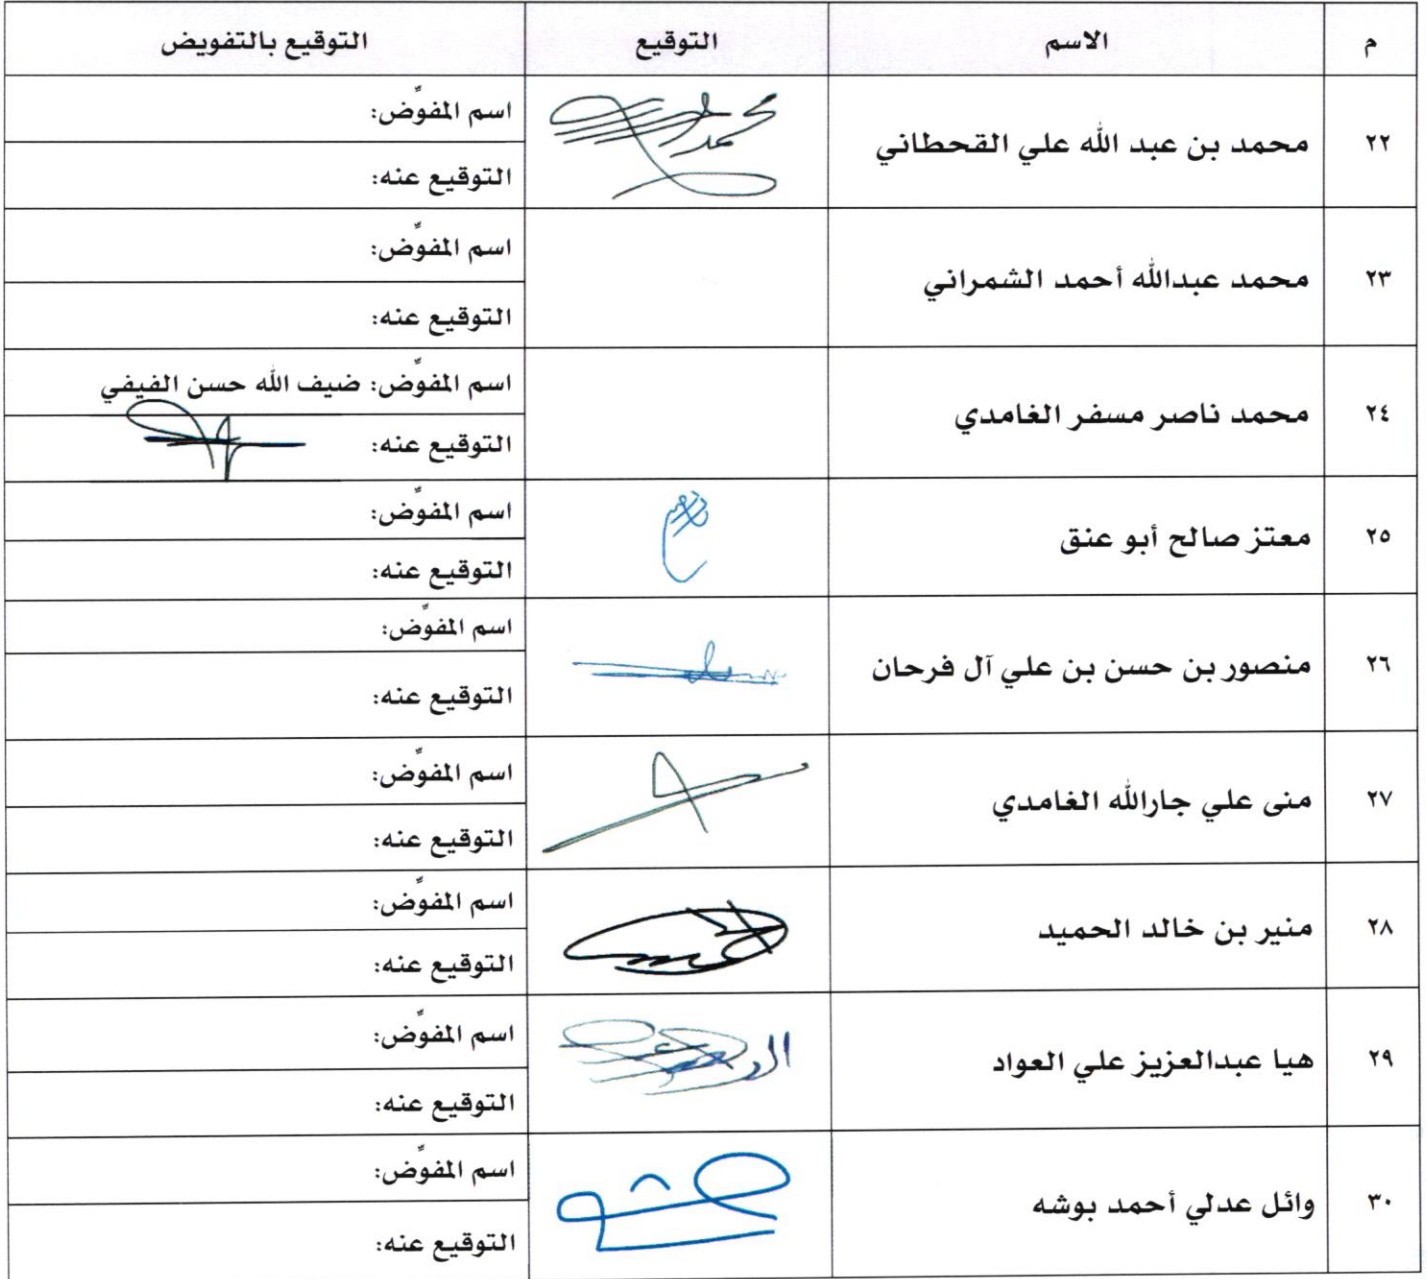 م الاسم التوقيع التوقيع بالتفويض
٢٢ محمد بن عبد الله علي القحطاني
اسم المفوِّض:
التوقيع عنه:
٢٣ محمد عبدالله أحمد الشمراني
اسم المفوِّض:
التوقيع عنه:
٢٤ محمد ناصر مسفر الغامدي
اسم المفوِّض: ضيف الله حسن الفيفي
التوقيع عنه:
٢٥ معتز صالح أبو عنق
اسم المفوِّض:
التوقيع عنه:
٢٦ منصور بن حسن بن علي آل فرحان
اسم المفوِّض:
التوقيع عنه:
٢٧ منى علي جارالله الغامدي
اسم المفوِّض:
التوقيع عنه:
٢٨ منير بن خالد الحميد
اسم المفوِّض:
التوقيع عنه:
٢٩ هيا عبدالعزيز علي العواد
اسم المفوِّض:
التوقيع عنه:
٣٠ وائل عدلي أحمد بوشه
اسم المفوِّض:
التوقيع عنه: